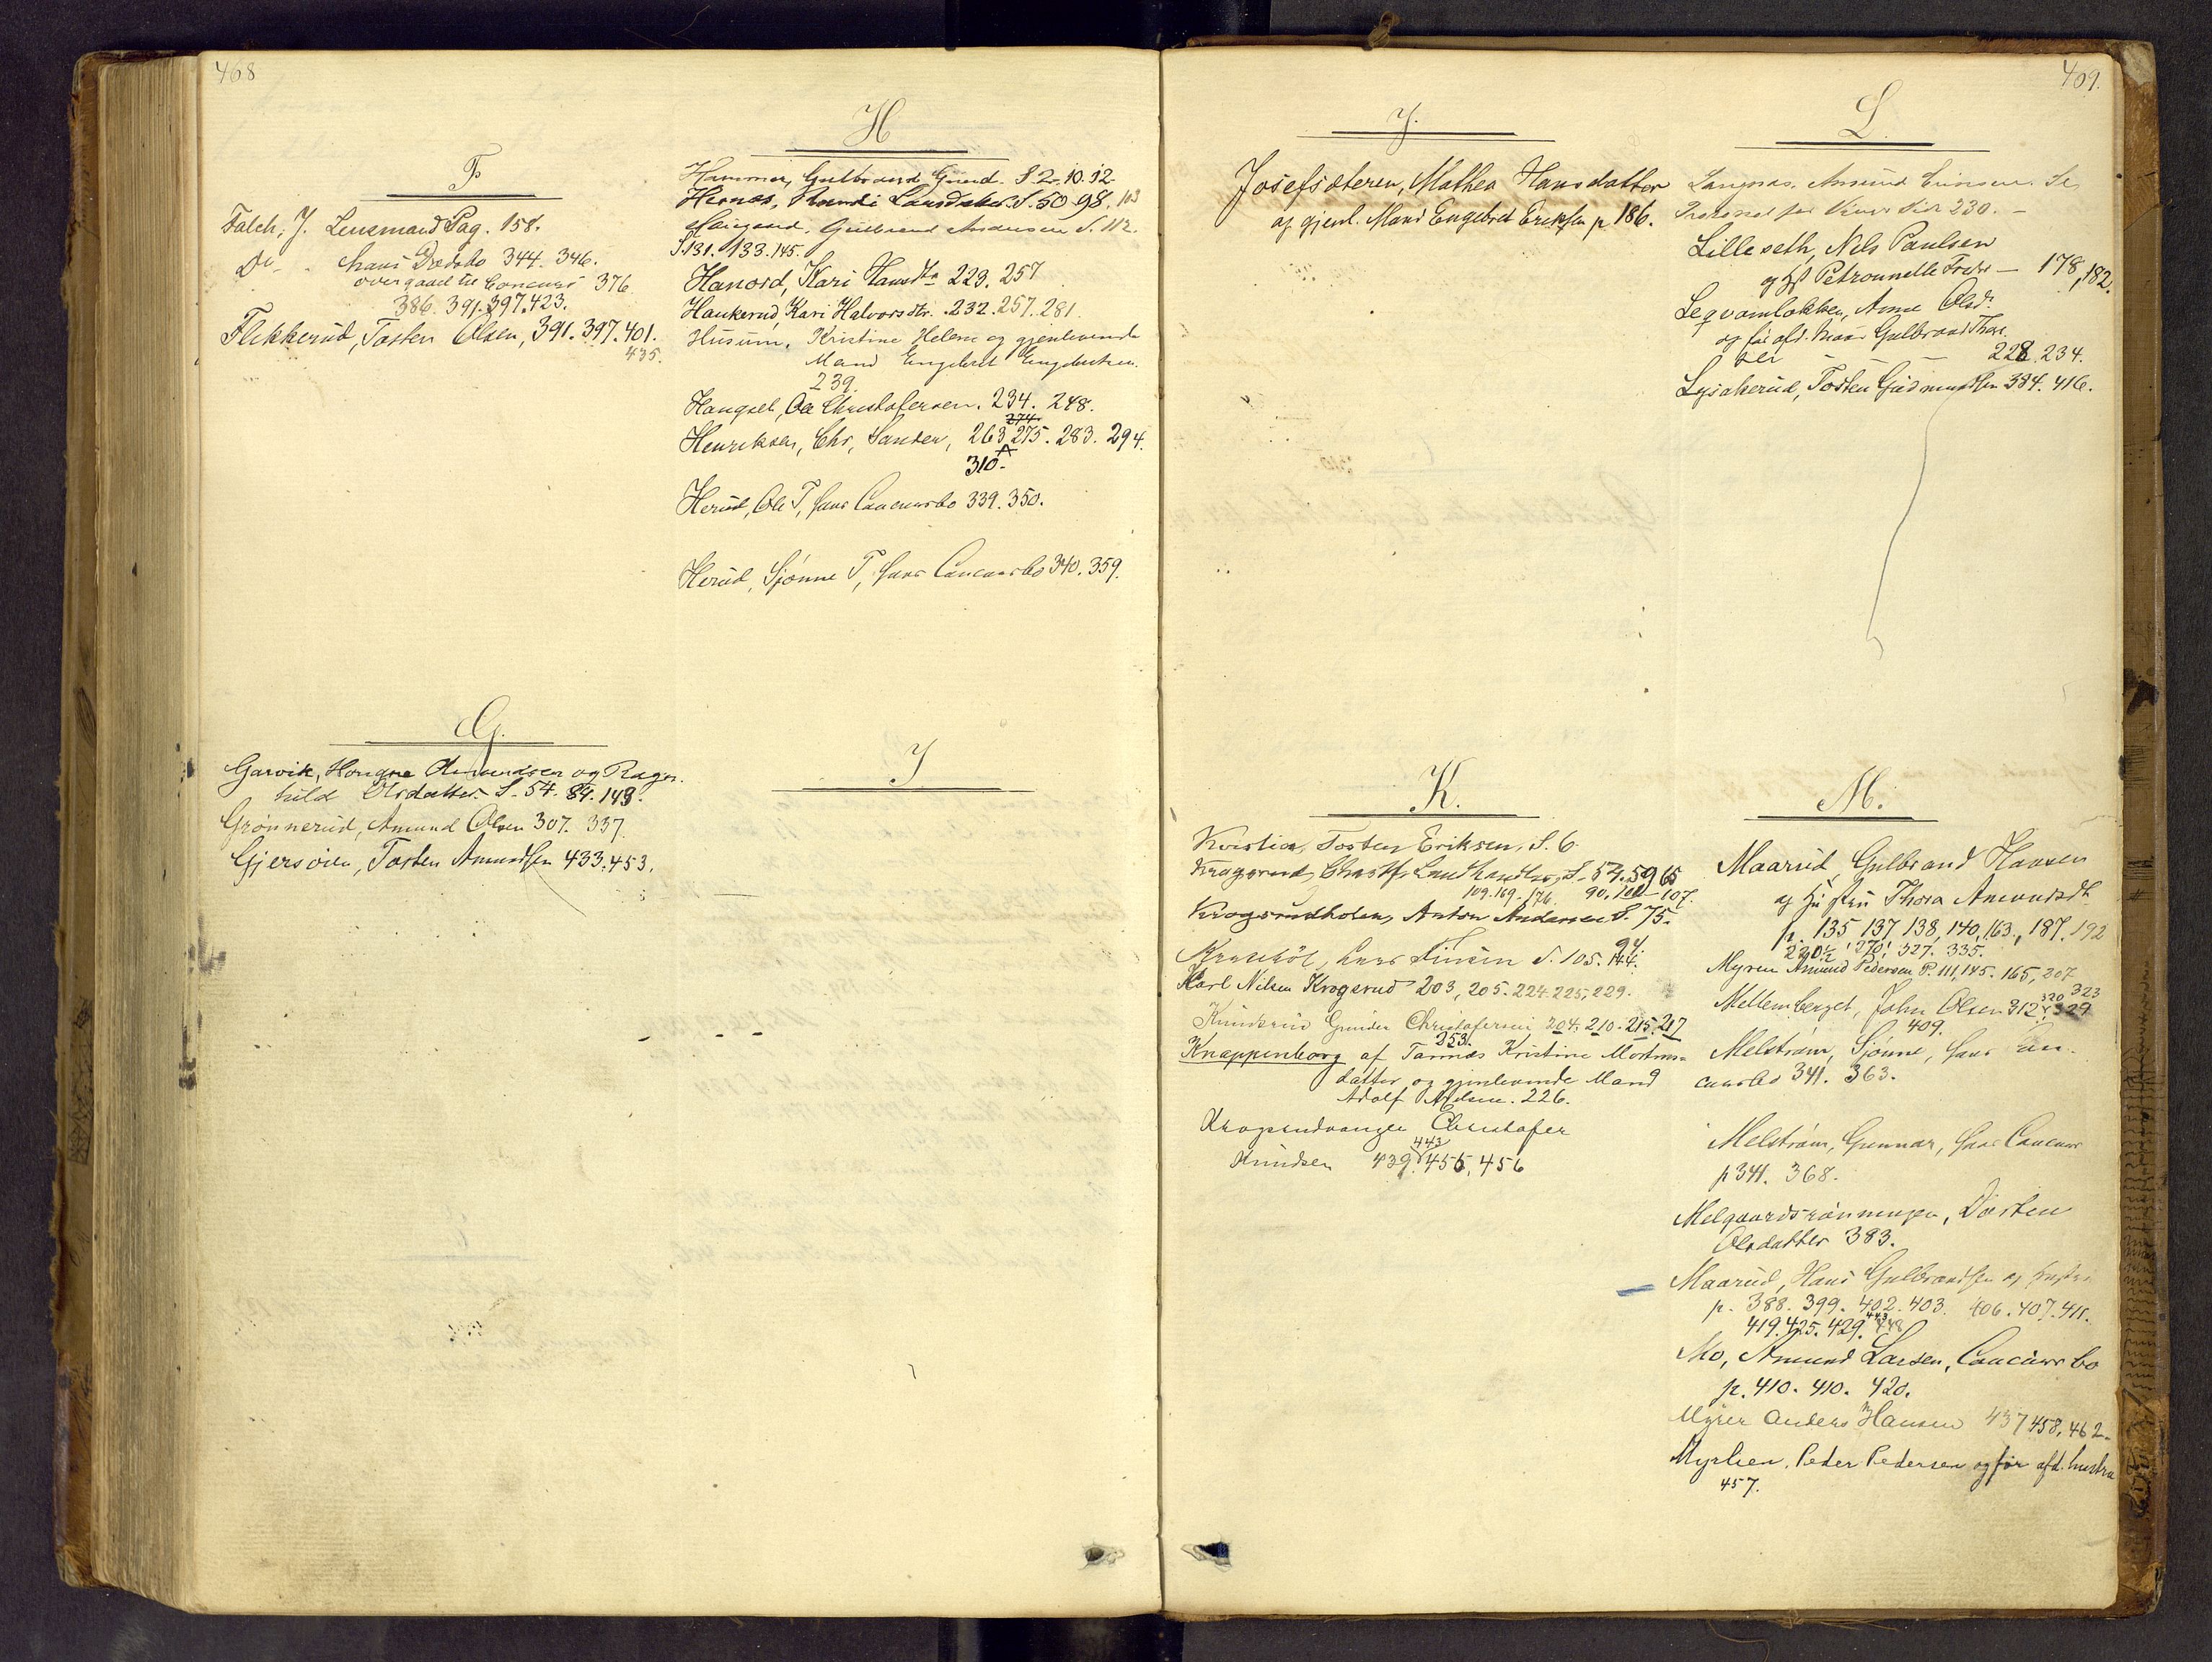 468
F
Falch, J. Lensmand Pag. 158.
Do - hans Dødsbo 344. 346.
overgaaet til Concurs 376
386. 391. 397. 423.
Flikkerud, Tosten Olsen, 391. 397. 401.
435.
G.
Garvik, Hougne Amundsen og Ragn-
hild Olsdatter S. 54. 84. 149.
Grønnerud, Amund Olsen 307. 337.
Gjersøien, Tosten Amundsen 433. 453.
H
Hammer, Gulbrand Gund. S. 2. 10. 12
Hernæs, Randi Larsdatter S. 50. 98. 103
Gulbrand Andersen S. 112.
S. 131. 133. 145.
Hanord, Kari Hansdtr 223. 257
Haukerud, Kari Halvorsdtr. 232. 257. 281.
Husum, Kristine Helene og gjenlevende
Mand Engebret Engebretsen.
239.
Haugset, Ole Christofersen. 234. 248.
274.
Henriksen, Chr, Sander, 263 275. 283. 294.
310.
Herud, Ole T, hans Concursbo 339. 350.
Herud, Sjønne T, hans Concursbo 340. 359.
I
409.
J.
Josefsæteren, Mathea Hansdatter
og gjenl. Mand Engebret Eriksen p. 186.
K.
Kvistia, Tosten Eriksen, S. 6.
Krogsrud, Christf. Landhandler, S. 54. 59 65
109. 169. 176. 90. 100 107.
Krogsrudholen, Anton Andersen S. 75.
94.
Lars S. 105. 144.
Karl Nilsen Krogsrud 203, 205. 224. 225, 229.
Gunder Christofersen 204. 210. 215. 217
253.
Knappenborg af Tarnæs Kristine Mortens-
datter og gjenlevende Mand
Adolf Nilsen. 226.
Krogsrudvangen Christofer
443
Knudsen 439. 455, 456
L.
Langnæs, Amund
230. -
Lilleseth, Nils Paulsen
og Petronnelle - 178, 182.
Leqvamløkken, Anne Olsdr
og før afd. Mand Gulbrand Thor
sen 228. 234.
Lysakerud, Tosten Gudmundsen 384. 416.
M.
Maarud, Gulbrand Hansen
og Hustru Thora Amundsdtr
p. 135 137 138, 140, 163, 187. 192
220½ 270. 327. 335.
Myren Amund Pedersen P. 111, 145. 165, 207
320 323
Mellemberget, John Olsen 312 329
409.
Melstrøm, Sjønne, hans Con-
cursbo 341. 363.
Melstrøm, Gunnar, hans Concurs
p 341. 368.
Melgaardsrønningen, Dorthea
Olsdatter 383.
Maarud, Hans Gulbrandsen og Hustru
p. 388. 399. 402. 403. 406. 407. 411.
419. 425. 429. 443 448
Mo, Amund Larsen, Concursbo
p. 410. 410. 420.
Myrer Anders Hansen 437 458, 462.
Myrlien, Peder Pedersen og før afd. hustru
457.